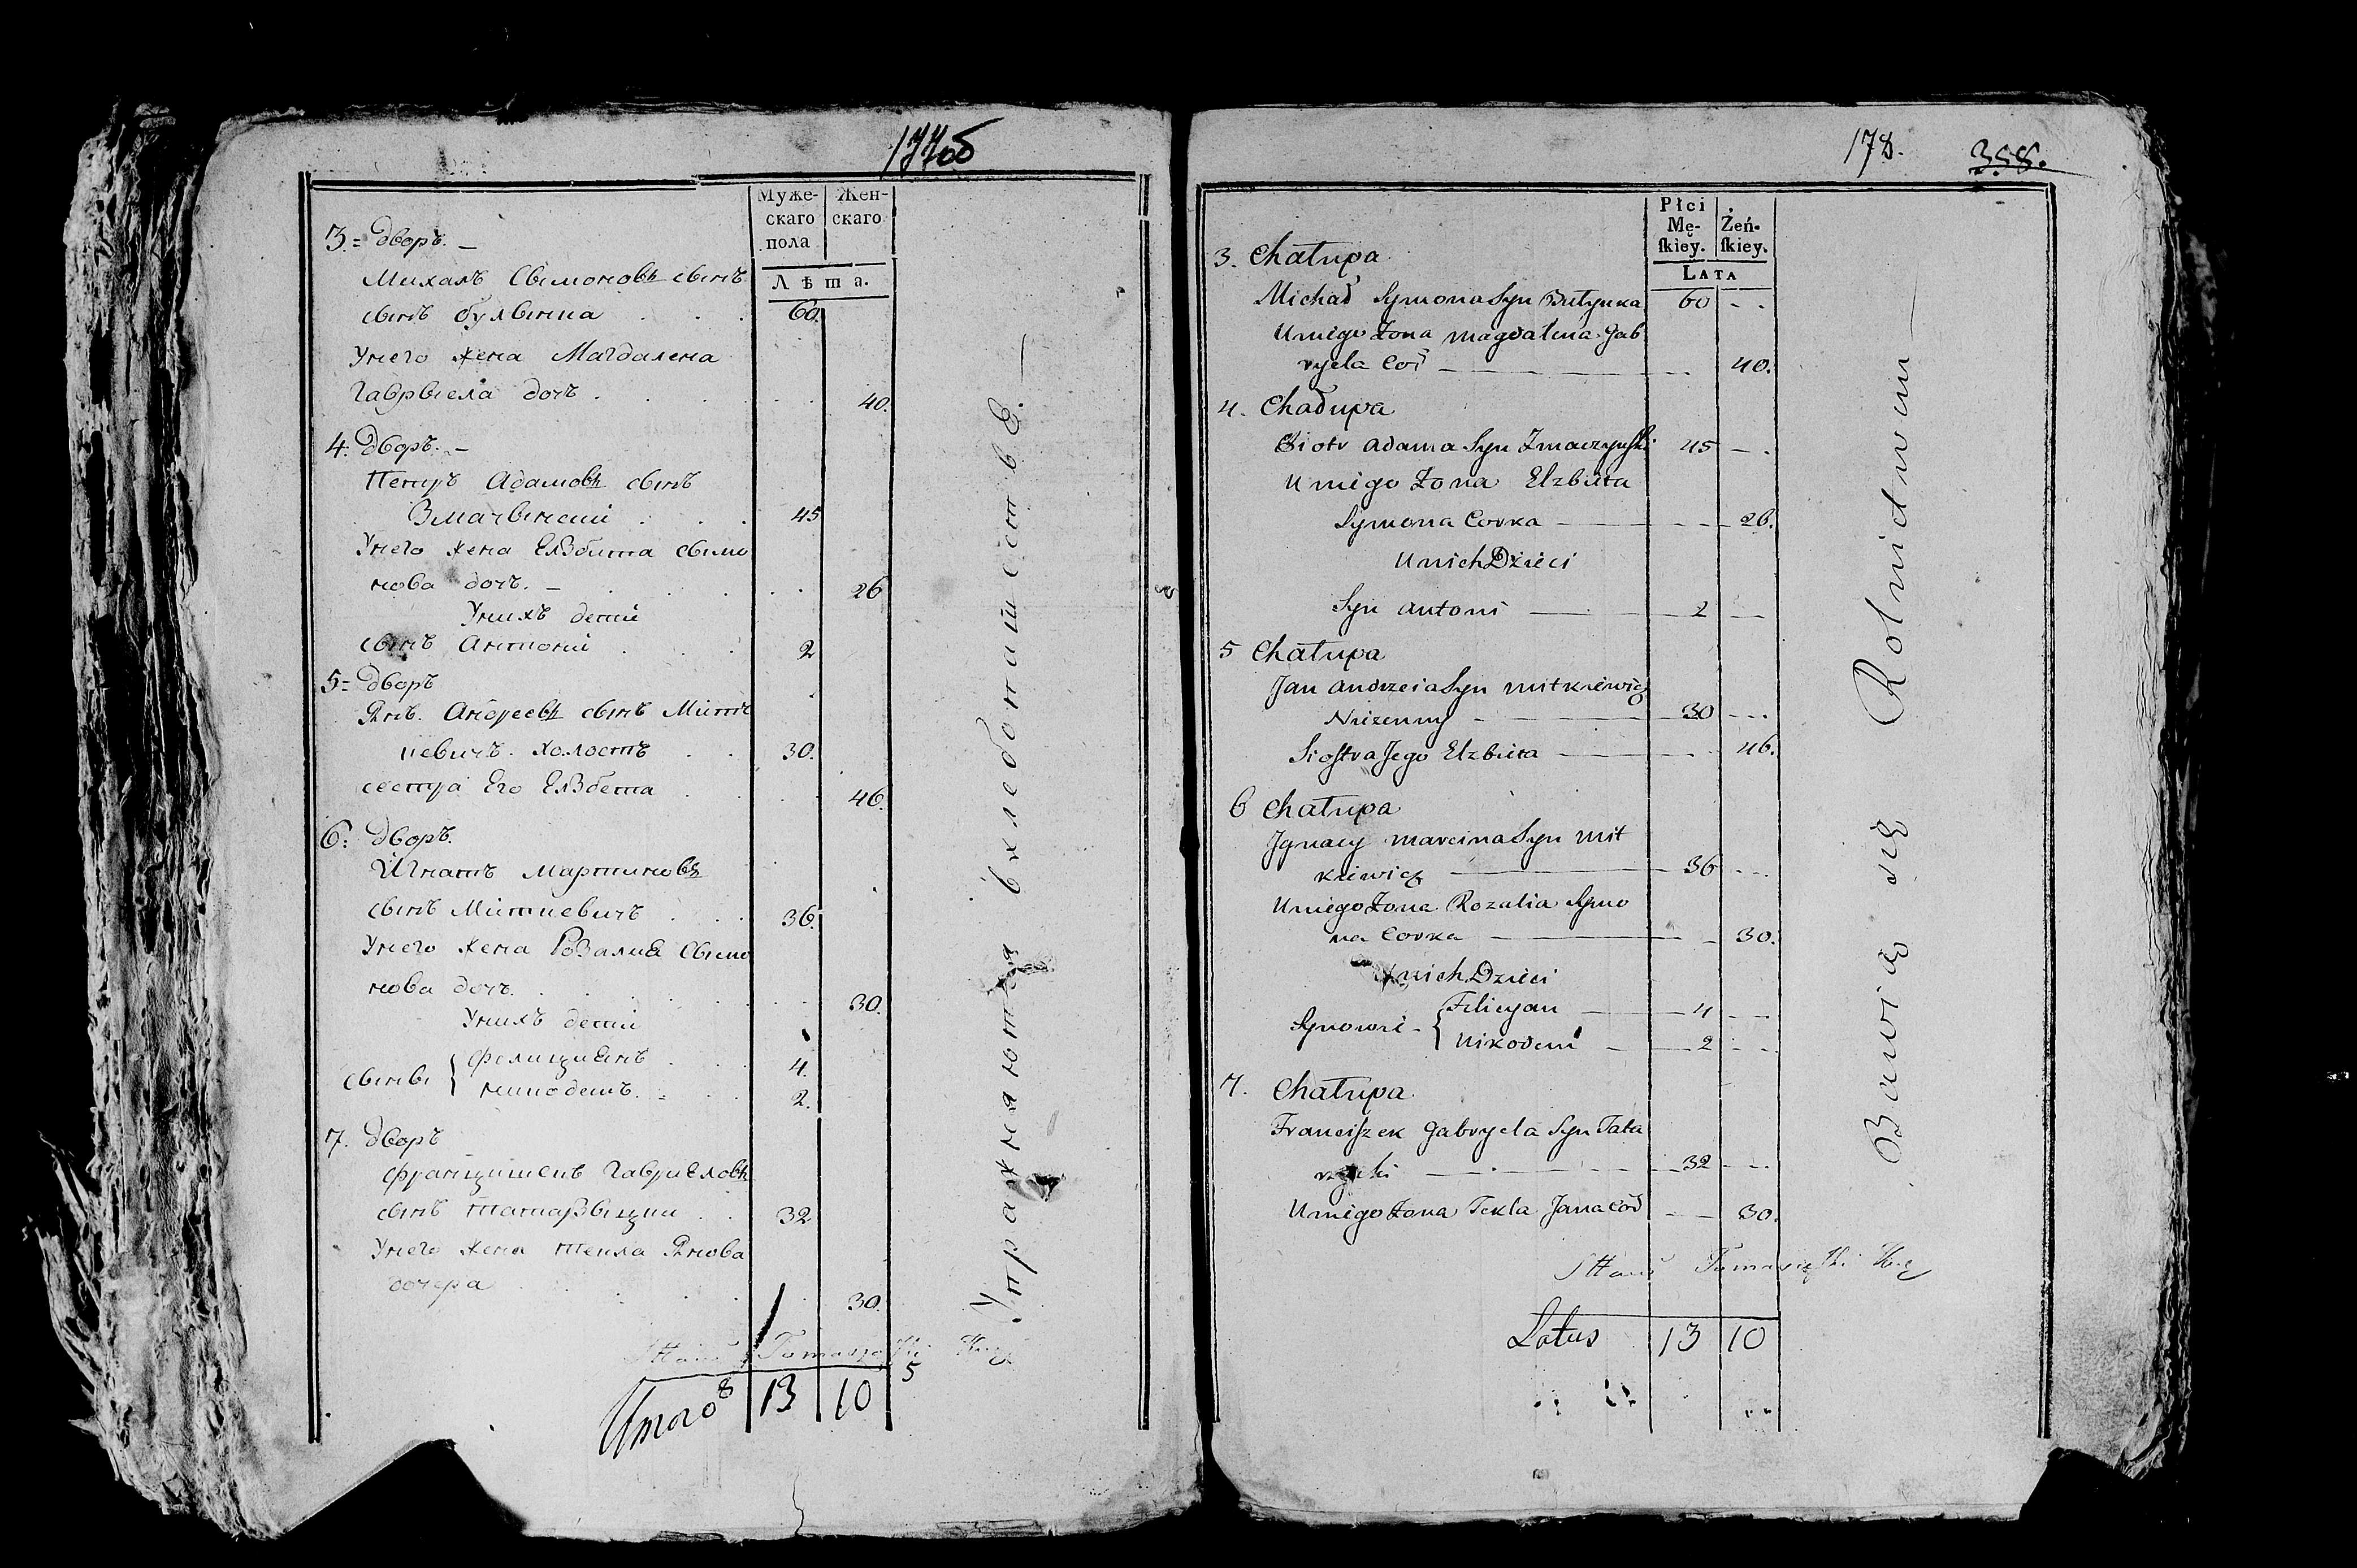 177об
Муже-
скаго
пола
Жен-
скаго
Лѣта.
3.= дворъ. –
Михалъ Сымоновъ сынъ
сынъ булвинка . . . 60.
Унего жена Магдалена
Гаврыела дочъ . . . 40.
4. дворъ. –
Петръ Адамовъ сынъ
Змачынский . . . 45
Унего жена Елзбита сымо
нова дочъ. – . . . 26
Унихъ детий
сынъ Антоний . . . 2
5= дворъ
Янъ. Андреевъ сынъ Митъ
кевичъ. холостъ . . 30.
сестра Его Елзбета . . . 46.
6: дворъ.
Игнатъ Мартиновъ
сынъ Миткевичъ . . . 36.
Унего жена Розалия Сымо
нова дочъ. . . . 30.
Унихъ детий
сыны { фелициянъ . . . 4.
никодемъ. . . 2.
7. дворъ
францишекъ Гавриеловъ
сынъ татарзыцки . . 32
Унего жена текла Янова
дочера . . . 30.
Упражняютъся вхлебопашестве. —
5
Итого 8 13 10
178.
358.
Płci
Mę-
ſkiey.
Żeń-
ſkiey.
LATA
3. Chałupa
Michał Symona Syn Bułynka 60 - -
Uniego Żona Magdalena Gab
ryela Coř — 40.
4. Chałupa
Piotr Adama Syn Zmaczynſki 45 - -
Uniego Żona Elzbieta
Symona Corka — 26.
Unich Dzieci
Syn Antoni — 2 —
5 Chałupa
Jan Andrzeia Syn Mitkiewicz
Niżenny — 30 - - -
Sioſtra Jego Elzbieta — 46.
6 Chałupa
Jgnacy Marcina Syn Mit
kiewicz — 36 - - -
Uniego Żona Rozalia Symo
na Corka — 30.
Unich Dzieci
Synowie - { Felicyan — 4 - -
Nikodem — 2 - -
7. Chałupa.
Franciſzek Gabryela Syn Tata
rzycki — 32 - - -
Uniego Żona Tekla Jana Coř — 30.
Bawią się Rolnictwem —
Latus 13 10